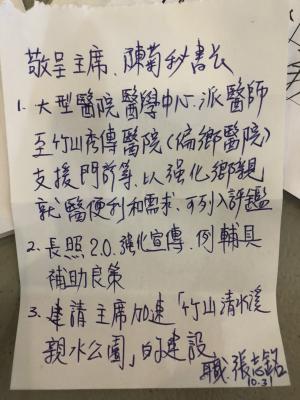 敬呈主席、陳菊秘書長
1. 大型醫院醫學中心、派醫師
至竹山秀傳醫院(偏鄉醫院)
支援門診等、以強化鄉親
就醫便利和需求、可列入評鑑
2. 長照2.0、強化宣傳、例輔具
補助良策
3. 建請主席加速「竹山清水溪
親水公園」的建設
職 張志銘
10.31